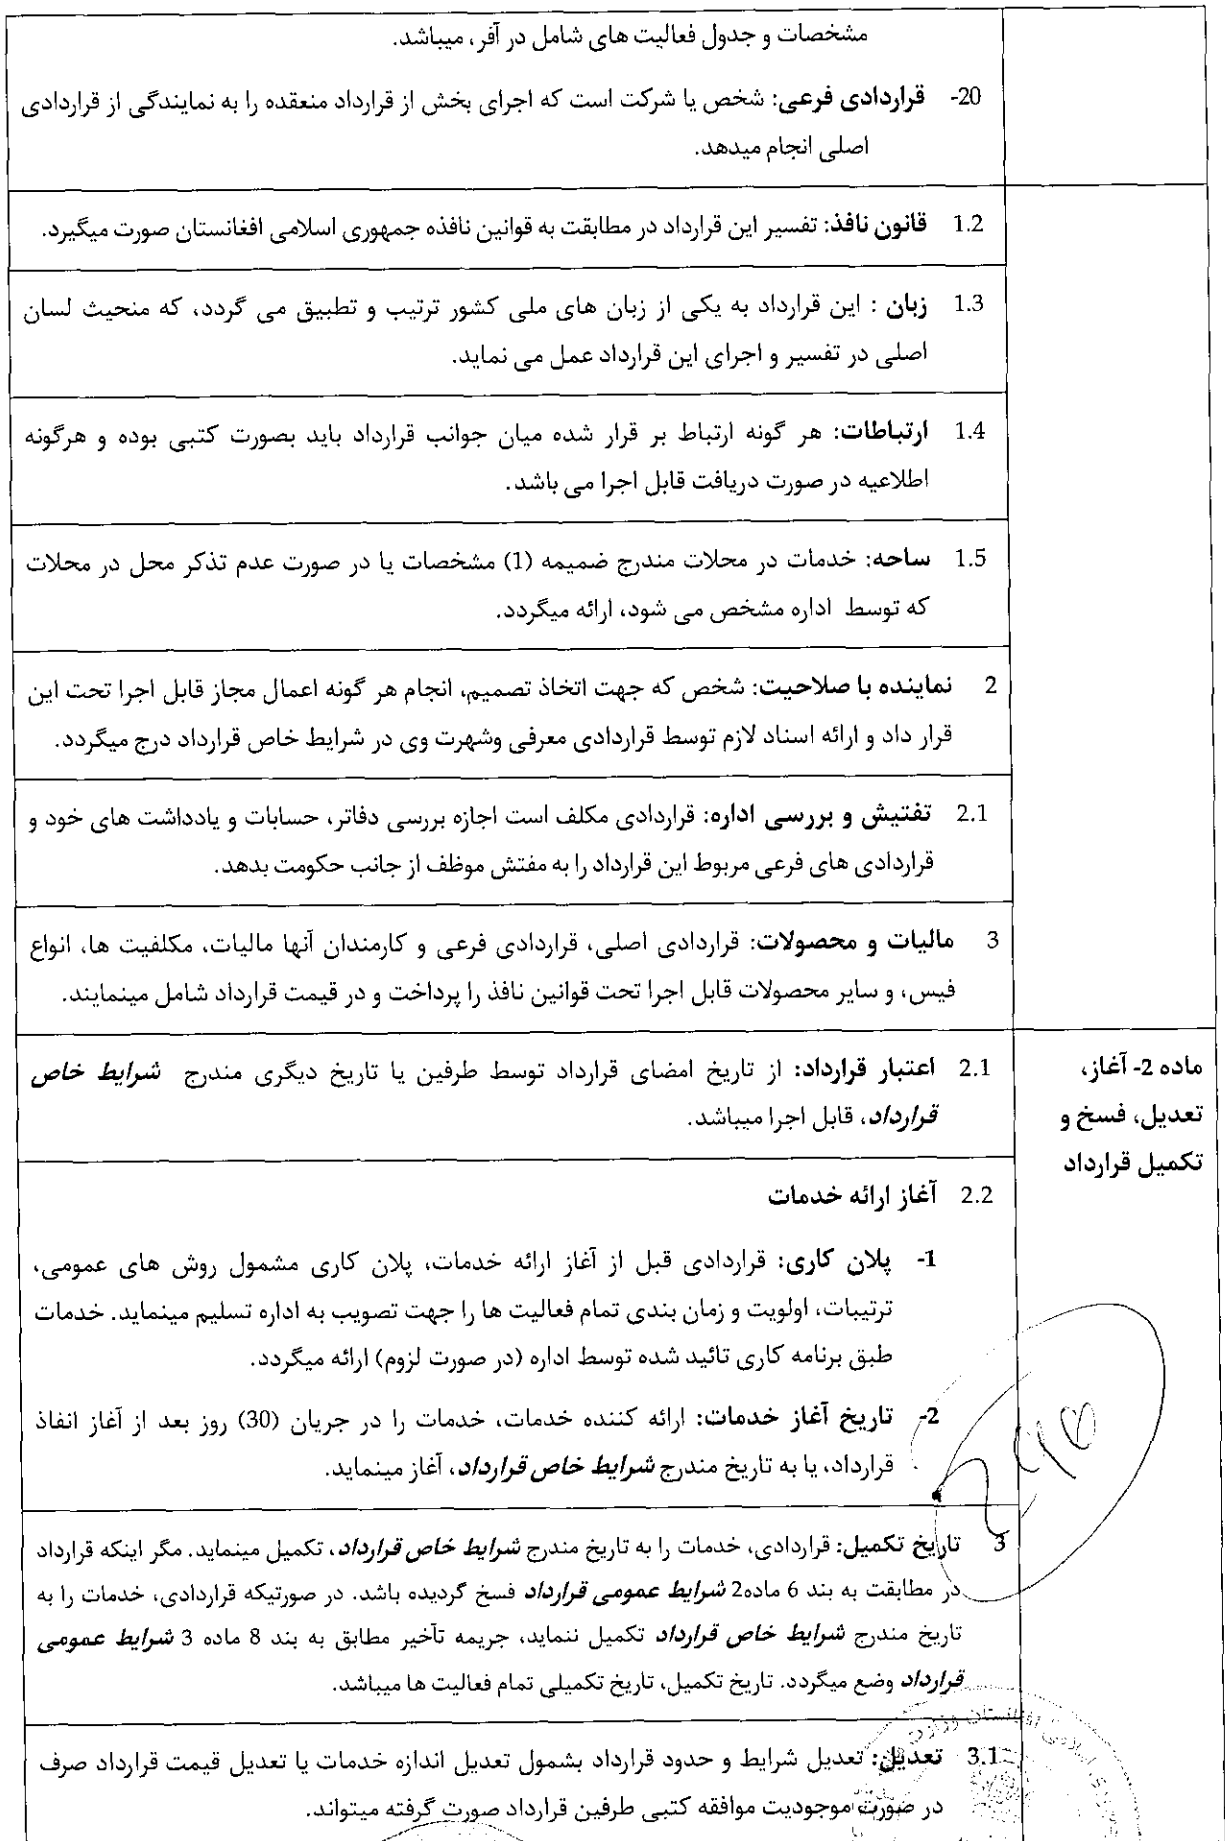 مشخصات و جدول فعالیت های شامل در آفر، میباشد.
20- قراردادی فرعی: شخص یا شرکت است که اجرای بخش از قرارداد منعقده را به نمایندگی از قراردادی
اصلی انجام میدهد.
1.2 قانون نافذ: تفسیر این قرارداد در مطابقت به قوانین نافذه جمهوری اسلامی افغانستان صورت میگیرد.
1.3 زبان : این قرارداد به یکی از زبان های ملی کشور ترتیب و تطبیق می گردد، که منحیث لسان
اصلی در تفسیر و اجرای این قرارداد عمل می نماید.
1.4 ارتباطات: هر گونه ارتباط بر قرار شده میان جوانب قرارداد باید بصورت کتبی بوده و هرگونه
اطلاعیه در صورت دریافت قابل اجرا می باشد.
1.5 ساحه: خدمات در محلات مندرج ضمیمه (1) مشخصات یا در صورت عدم تذکر محل در محلات
که توسط اداره مشخص می شود، ارائه میگردد.
2 نماینده با صلاحیت: شخص که جهت اتخاذ تصمیم، انجام هر گونه اعمال مجاز قابل اجرا تحت این
قرار داد و ارائه اسناد لازم توسط قراردادی معرفی وشهرت وی در شرایط خاص قرارداد درج میگردد.
2.1 تفتیش و بررسی اداره: قراردادی مکلف است اجازه بررسی دفاتر، حسابات و یادداشت های خود و
قراردادی های فرعی مربوط این قرارداد را به مفتش موظف از جانب حکومت بدهد.
3 مالیات و محصولات: قراردادی اصلی، قراردادی فرعی و کارمندان آنها مالیات، مکلفیت ها، انواع
فیس، و سایر محصولات قابل اجرا تحت قوانین نافذ را پرداخت و در قیمت قرارداد شامل مینمایند.
ماده 2- آغاز،
تعدیل، فسخ و
تکمیل قرارداد
2.1 اعتبار قرارداد: از تاریخ امضای قرارداد توسط طرفین یا تاریخ دیگری مندرج شرایط خاص
قرارداد، قابل اجرا میباشد.
2.2 آغاز ارائه خدمات
1- پلان کاری: قراردادی قبل از آغاز ارائه خدمات، پلان کاری مشمول روش های عمومی،
ترتیبات، اولویت و زمان بندی تمام فعالیت ها را جهت تصویب به اداره تسلیم مینماید. خدمات
طبق برنامه کاری تائید شده توسط اداره (در صورت لزوم) ارائه میگردد.
2- تاریخ آغاز خدمات: ارائه کننده خدمات، خدمات را در جریان (30) روز بعد از آغاز انفاذ
قرارداد، یا به تاریخ مندرج شرایط خاص قرارداد، آغاز مینماید.
3 تاریخ تکمیل: قراردادی، خدمات را به تاریخ مندرج شرایط خاص قرارداد، تکمیل مینماید. مگر اینکه قرارداد
در مطابقت به بند 6 ماده2 شرایط عمومی قرارداد فسخ گردیده باشد. در صورتیکه قراردادی، خدمات را به
تاریخ مندرج شرایط خاص قرارداد تکمیل ننماید، جریمه تأخیر مطابق به بند 8 ماده 3 شرایط عمومی
قرارداد وضع میگردد. تاریخ تکمیل، تاریخ تکمیلی تمام فعالیت ها میباشد.
3.1 تعدیل: تعدیل شرایط و حدود قرارداد بشمول تعدیل اندازه خدمات یا تعدیل قیمت قرارداد صرف
در صورت موجودیت موافقه کتبی طرفین قرارداد صورت گرفته میتواند.